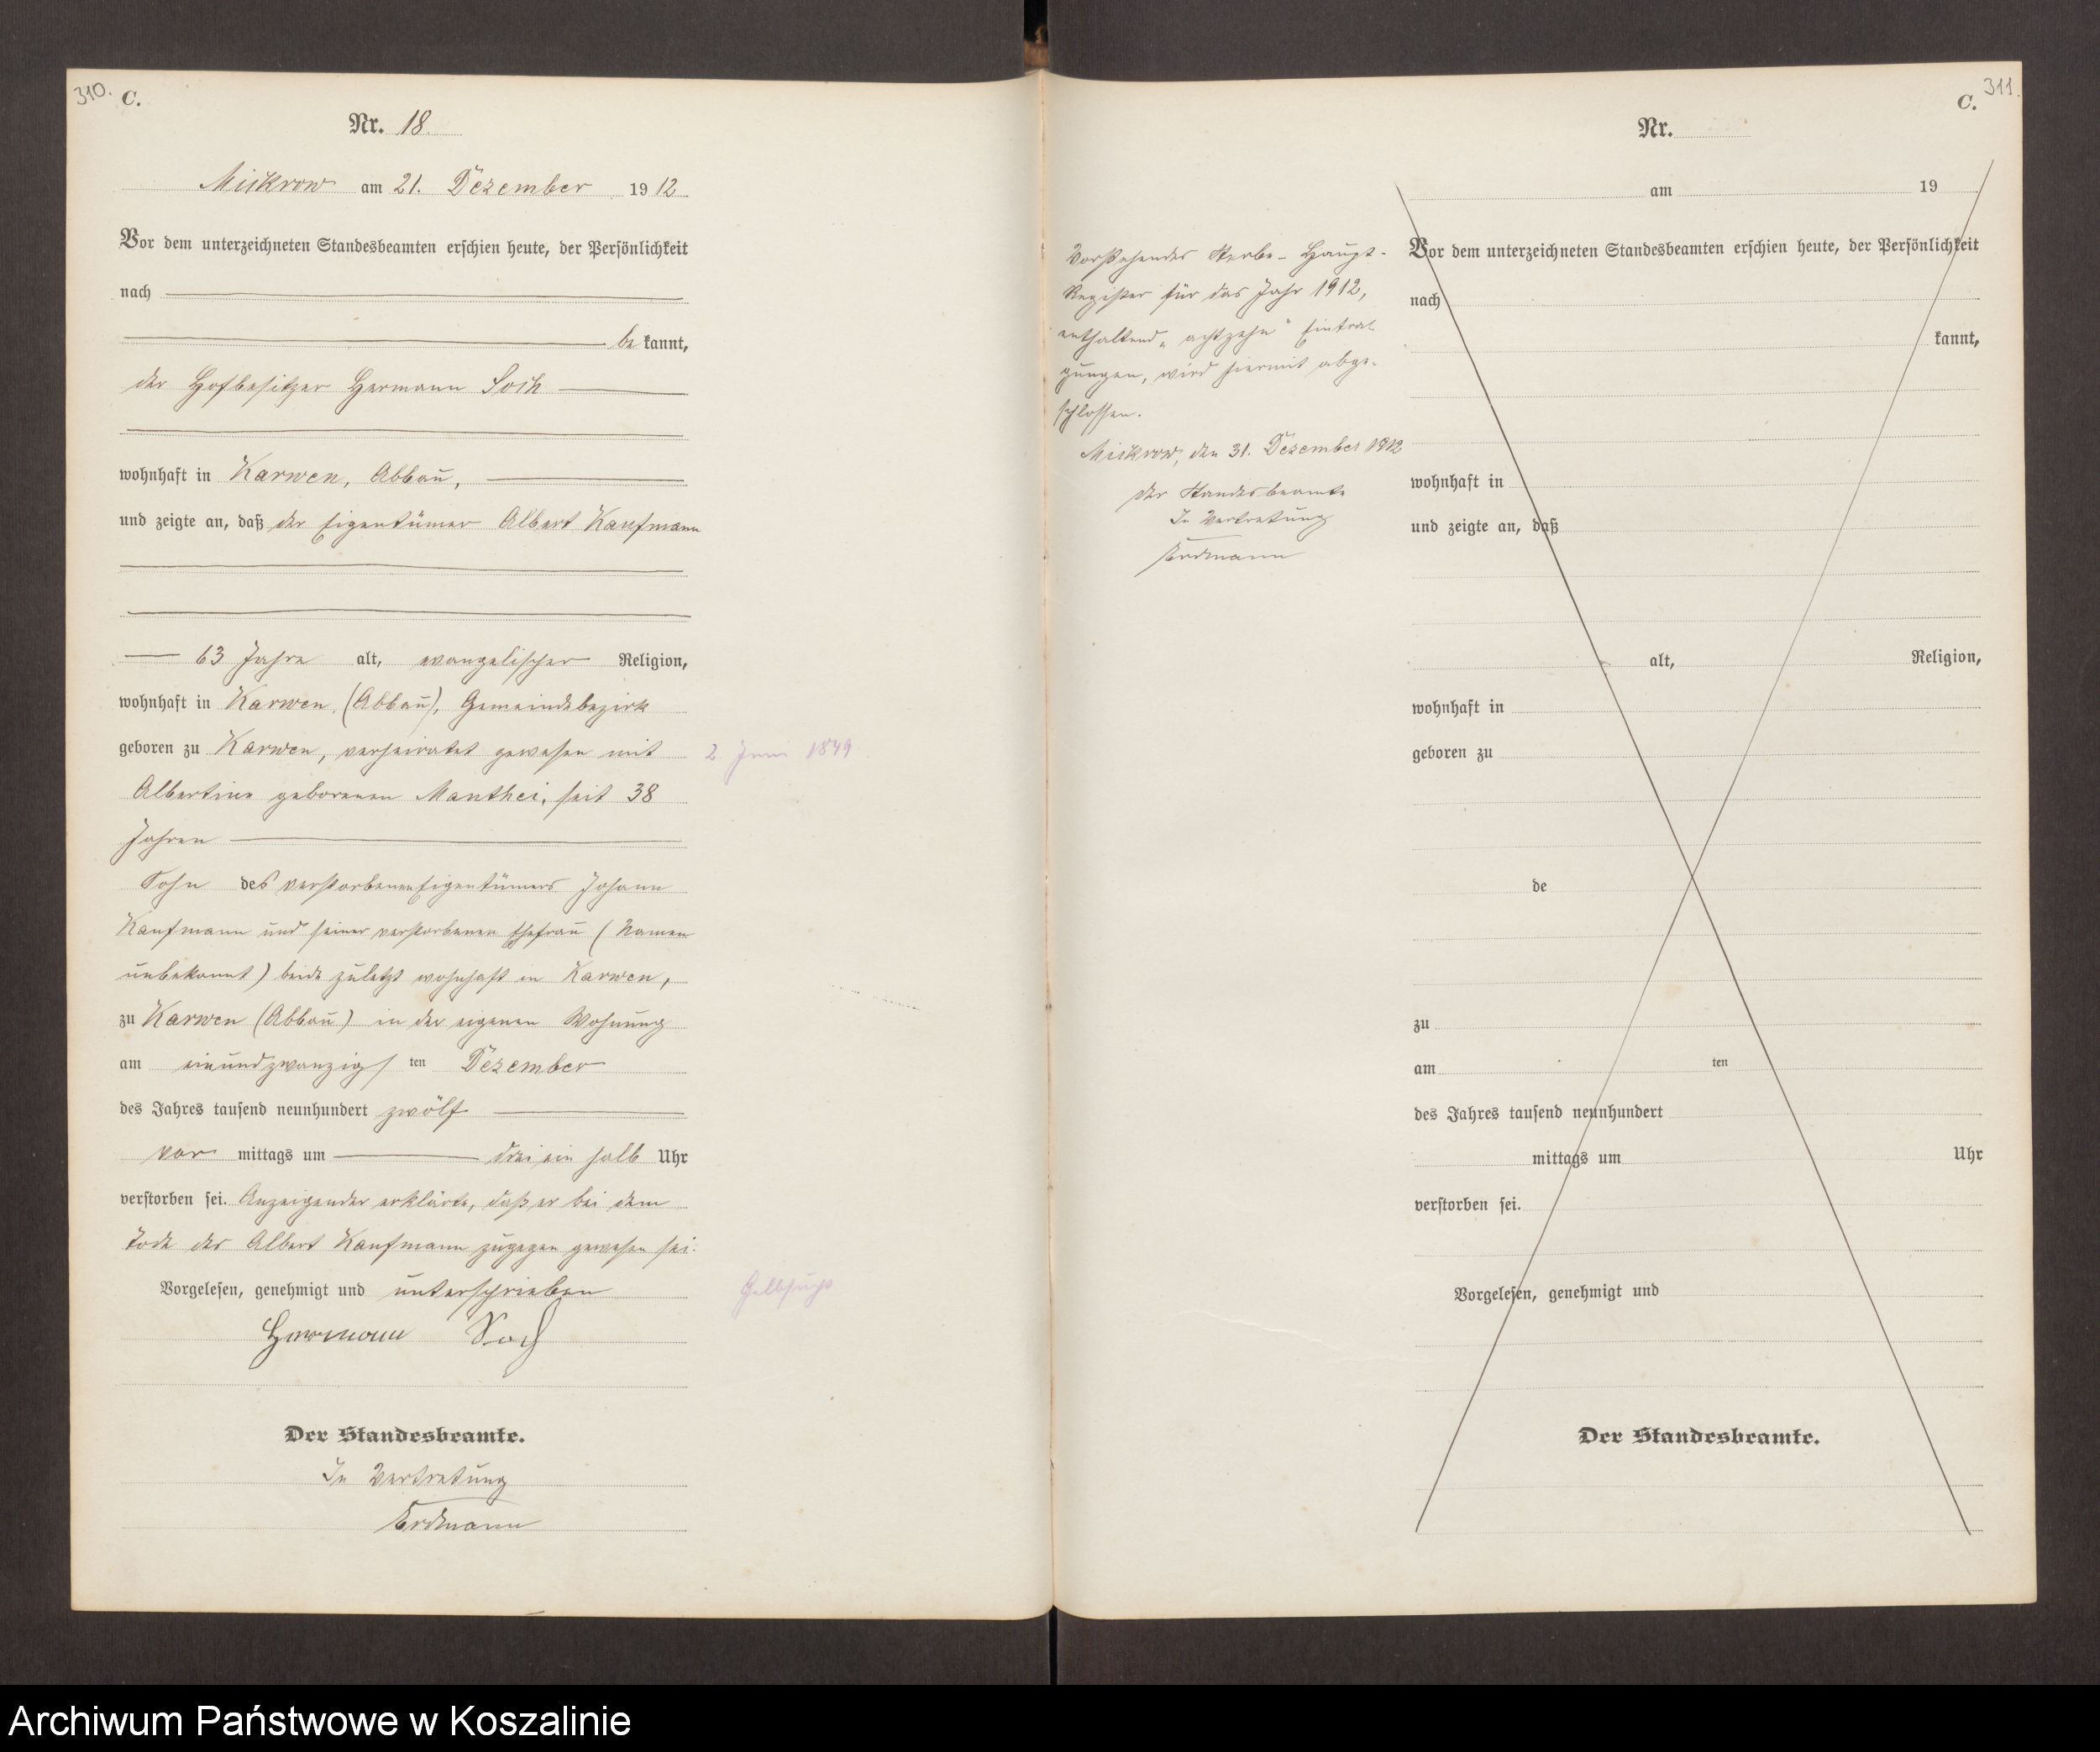 310.
C.
Nr. 18.
Mickrow am 21. Dezember 1912
Vor dem unterzeichneten Standesbeamten erschien heute, der Persönlichkeit
nach
be kannt,
der Hofbesitzer Hermann
wohnhaft in Karwen, Abbau,
und zeigte an, daß der Eigentümer Albert Kaufmann
63 Jahre alt, evangelischer Religion,
wohnhaft in Karwen, (Abbau), Gemeindebezirk
geboren zu Karwen, verheiratet gewesen mit
2. Juni 1849
Albertine geborenen Manthei, seit 38
Jahren
Sohn des verstorbenen Eigentümers Johann
Kaufmann und seiner verstorbenen Ehefrau (Namen
unbekannt) beide zuletzt wohnhaft in Karwen,
zu Karwen (Abbau) in der eigenen Wohnung
am einundzwanzigs ten Dezember
des Jahres tausend neunhundert zwölf
vor mittags um drei ein halb Uhr
verstorben sei. Anzeigender erklärte, daß er bei dem
Tode des Albert Kaufmann zugegen gewesen sei.
Vorgelesen, genehmigt und unterschrieben
Gelbsucht
Hermann
Der Standesbeamte.
In Vertretung
Erdmann
311.
C.
Vorstehendes Sterbe-Haupt-
Register für das Jahr 1912,
enthaltend „achtzehn“ Eintra-
gungen, wird hiermit abge-
schlossen.
Mickrow, den 31. Dezember 1912
Der Standesbeamte
In Vertretung
Erdmann
Nr.
am 19
Vor dem unterzeichneten Standesbeamten erschien heute, der Persönlichkeit
nach
kannt,
wohnhaft in
und zeigte an, daß
alt, Religion,
wohnhaft in
geboren zu
de
zu
am ten
des Jahres tausend neunhundert
mittags um Uhr
verstorben sei.
Vorgelesen, genehmigt und
Der Standesbeamte.
Archiwum Państwowe w Koszalinie